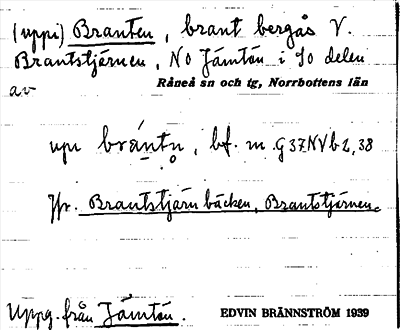 (uppi) Branten, brant bergås V.
Brantstjärnen, NO Jämtön i So delen
av
Råneå sn och tg, Norrbottens län
upi bräntn̥, bf. m. G37NVb2,38
Jfr. Brantstjärnbäcken, Brantstjärnen.
Uppg. från Jämtön.
EDVIN BRÄNNSTRÖM 1939